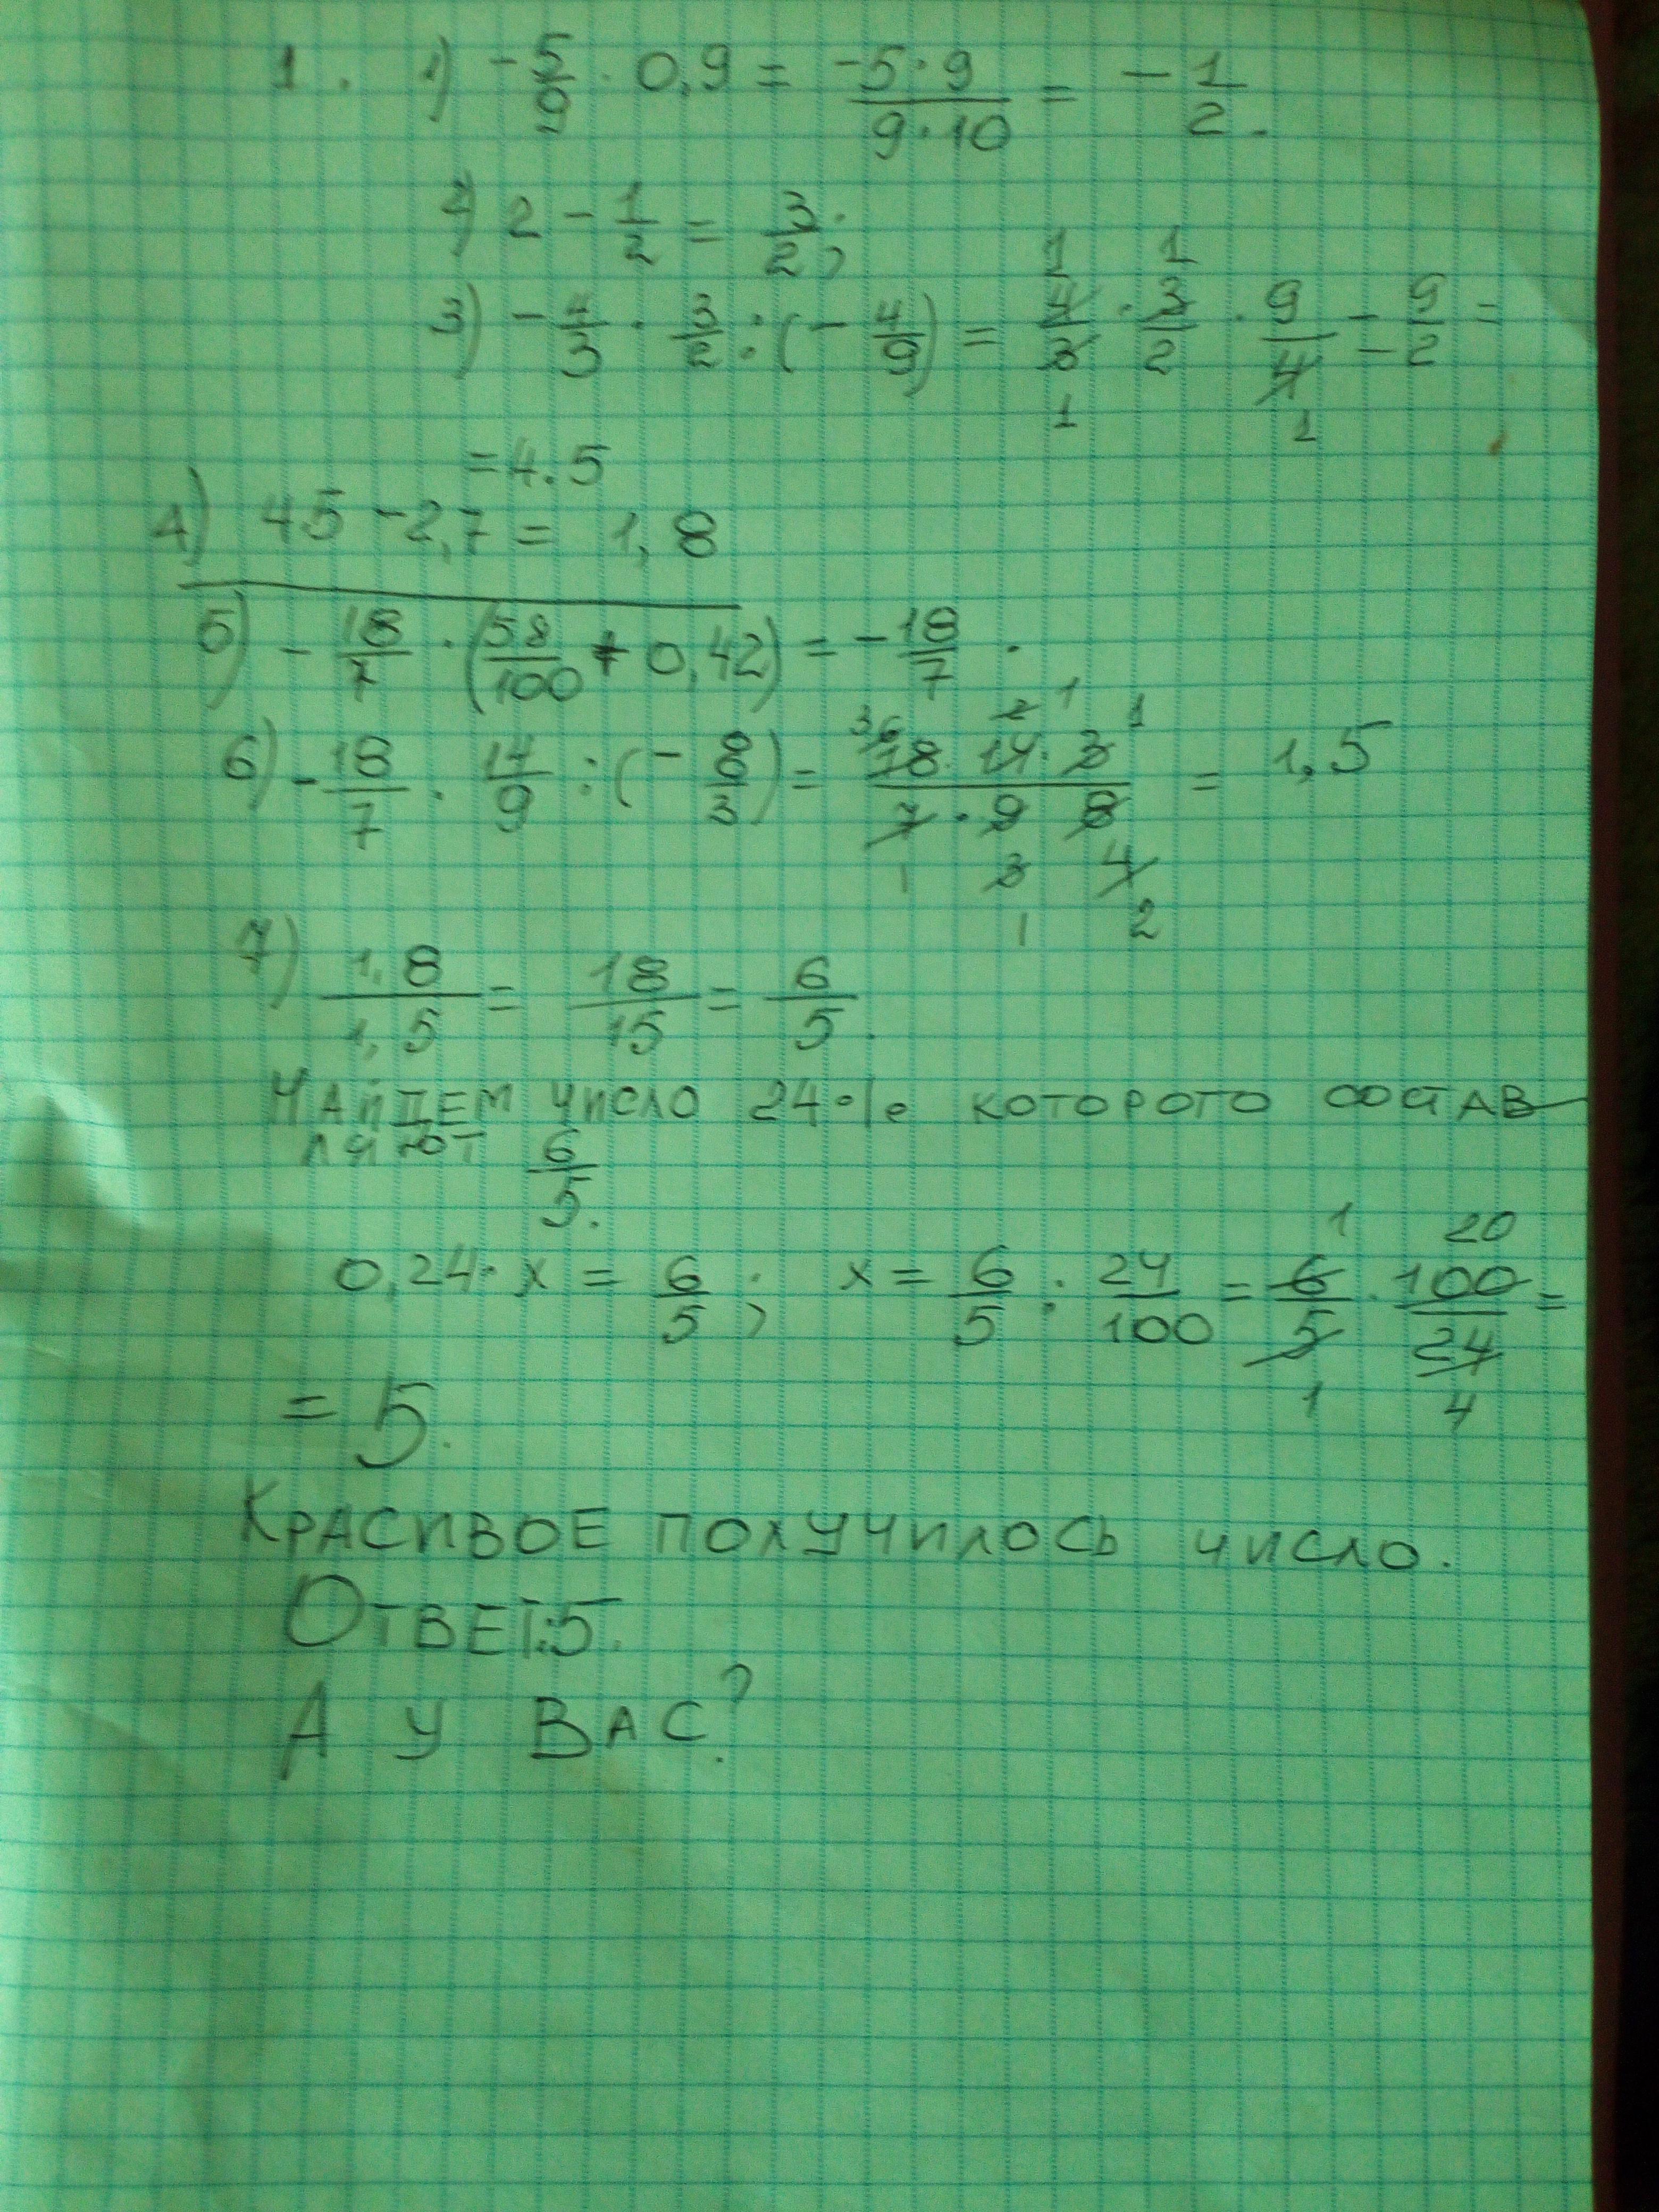 1. 1) -5/9 · 0,9 = -5·9/9·10 = -1/2.
2) 2 - 1/2 = 3/2;
3) -4/3 · 3/2 : (-4/9) = 4/3 · 3/2 · 9/4 - 9/-2 =
= 4.5
4) 4.5 - 2,7 = 1,8
5) -18/7 · (58/100 + 0,42) = -18/7.
6) -18/7 · 14/9 : (-8/3) = 18·14·3/7·9 8 = 1,5
7) 1,8/1,5 = 18/15 = 6/5.
Найдем число 24% которого состав-
ляют 6/5.
0,24·x = 6/5; x = 6/5 : 24/100 = 6/5 · 100/24 =
= 5.
Красивое получилось число.
Ответ:5.
А у Вас?